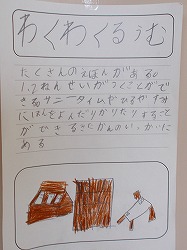 わくわくるうむ
たくさんのえほんがある。
1,2ねんせいがつくことがで
きるサニータイムやひるやすみ
にほんをよんだりかりたりすること
ができることかんのい、かいに
ある